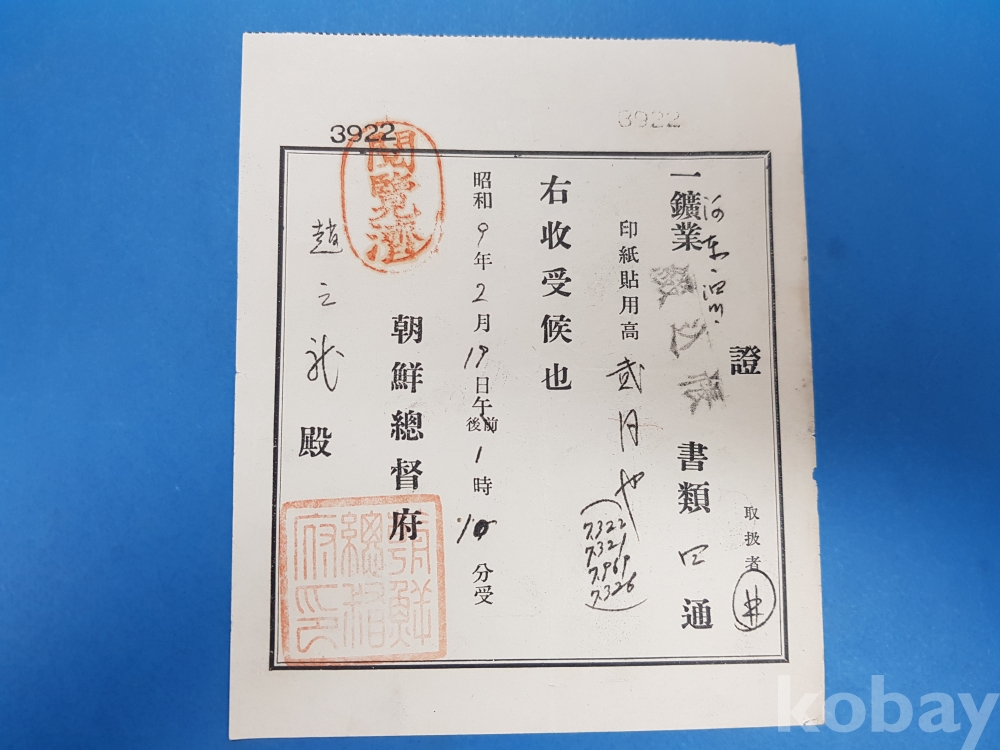 3922
3922
證
取扱者 井
一鑛業 河東 泗川 書類 四通
印紙貼用高 貳円也
(7322
7321
7969
7326)
右收受候也
昭和9年2月19日午前後1時10分受
朝鮮總督府
趙 龍 殿
閱覽濟
朝鮮總督府印
kobay